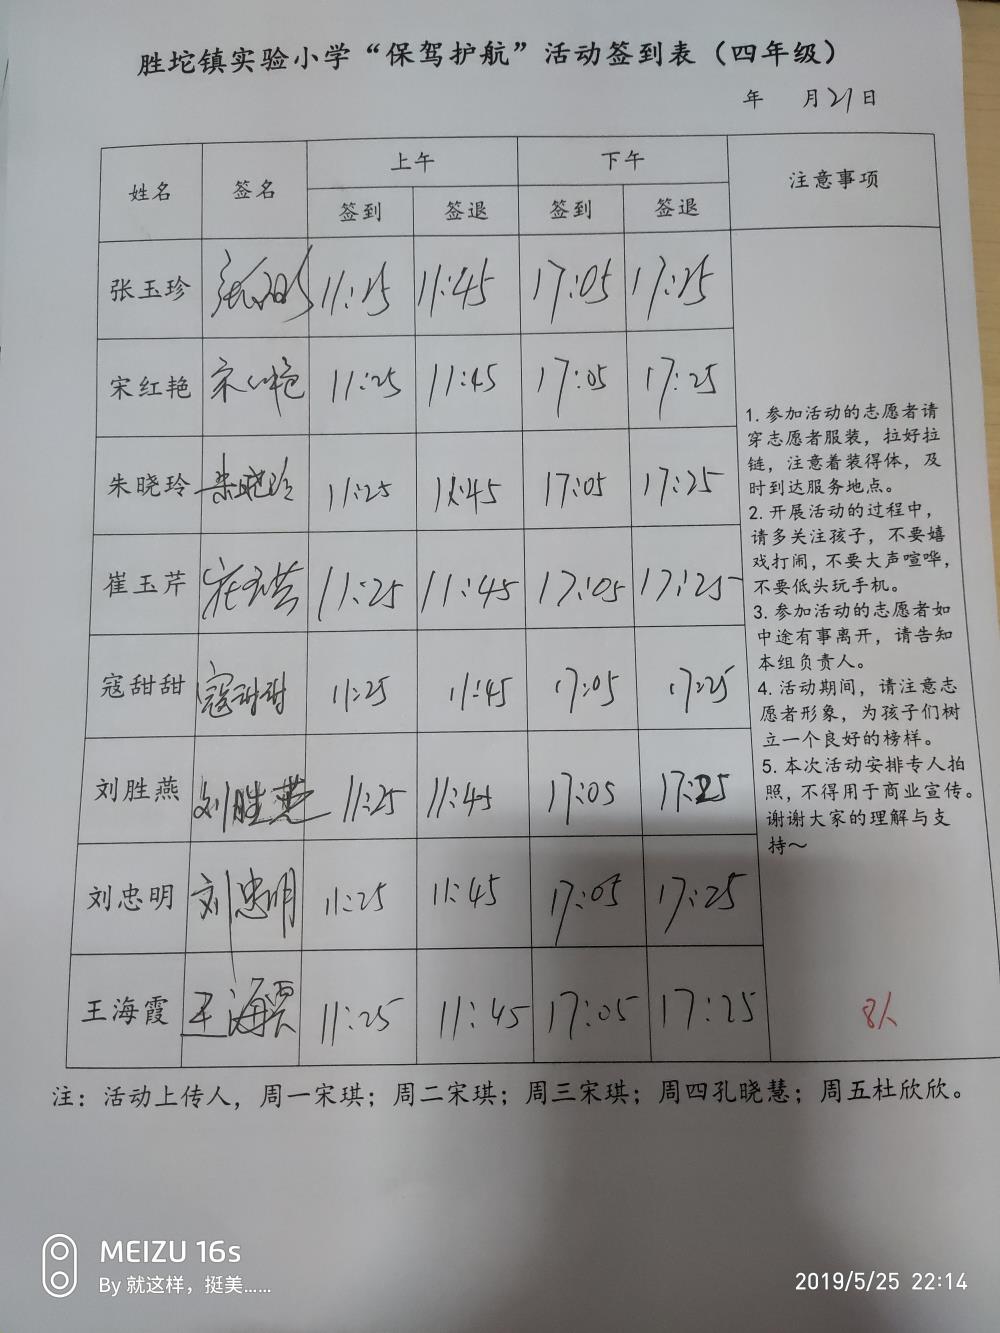 胜坨镇实验小学“保驾护航”活动签到表（四年级）
年 月21日
姓名 签名 上午 下午 注意事项
签到 签退 签到 签退
张玉珍 张玉珍 11:25 11:45 17:05 17:25
宋红艳 宋红艳 11:25 11:45 17:05 17:25
朱晓玲 朱晓玲 11:25 11:45 17:05 17:25
崔玉芹 崔玉芹 11:25 11:45 17:05 17:25
寇甜甜 寇甜甜 11:25 11:45 17:05 17:25
刘胜燕 刘胜燕 11:25 11:45 17:05 17:25
刘忠明 刘忠明 11:25 11:45 17:05 17:25
王海霞 王海霞 11:25 11:45 17:05 17:25
1. 参加活动的志愿者请
穿志愿者服装，拉好拉
链，注意着装得体，及
时到达服务地点。
2. 开展活动的过程中，
请多关注孩子，不要嬉
戏打闹，不要大声喧哗，
不要低头玩手机。
3. 参加活动的志愿者如
中途有事离开，请告知
本组负责人。
4. 活动期间，请注意志
愿者形象，为孩子们树
立一个良好的榜样。
5. 本次活动安排专人拍
照，不得用于商业宣传。
谢谢大家的理解与支
持～
8人
注：活动上传人，周一宋琪；周二宋琪；周三宋琪；周四孔晓慧；周五杜欣欣。
MEIZU 16s
By 就这样，挺美……
2019/5/25 22:14